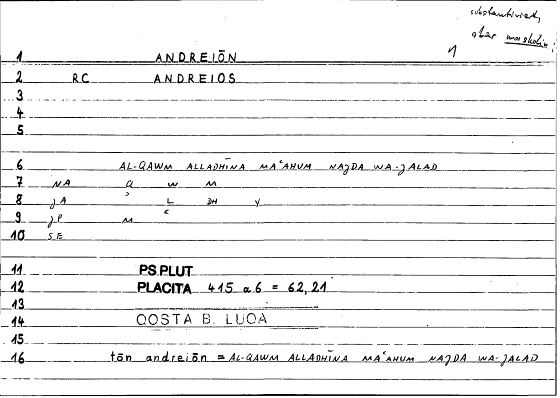 substantiviert,
aber maskulin
1
1 ANDREIŌN
2 RC ANDREIOS
3
4
5
6 AL-QAWM ALLADHĪNA MAʿAHUM NAJDA WA-JALAD
7 NA Q W M
8 JA ʾ L DH Y
9 JP M ʿ
10 SE
11 PS PLUT
12 PLACITA 415 a 6 = 62,21
13
14 QOSTA B. LUQA
15
16 tōn andreiōn = AL-QAWM ALLADHĪNA MAʿAHUM NAJDA WA-JALAD